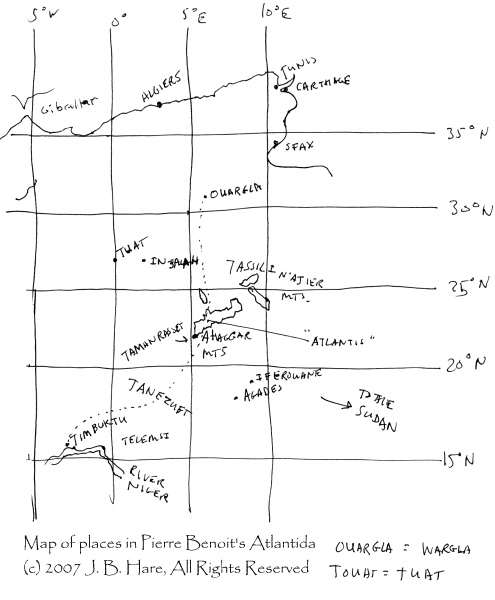 5°W
0°
5°E
10°E
TUNIS
CARTHAGE
ALGIERS
Gibraltar
35°N
SFAX
OUARGLA
30°N
TUAT
IN SALAH
TASSILI N'AJJER
MTS.
25°N
TAMANRASSET
AHAGGAR
MTS
"ATLANTIS"
20°N
IFEROUANE
AGADES
TANEZUFT
TO THE
SUDAN
TIMBUKTU
TELEMSI
15°N
RIVER
NIGER
Map of places in Pierre Benoit's Atlantida
(c) 2007 J. B. Hare, All Rights Reserved
OUARGLA = WARGLA
TOUAT = TUAT